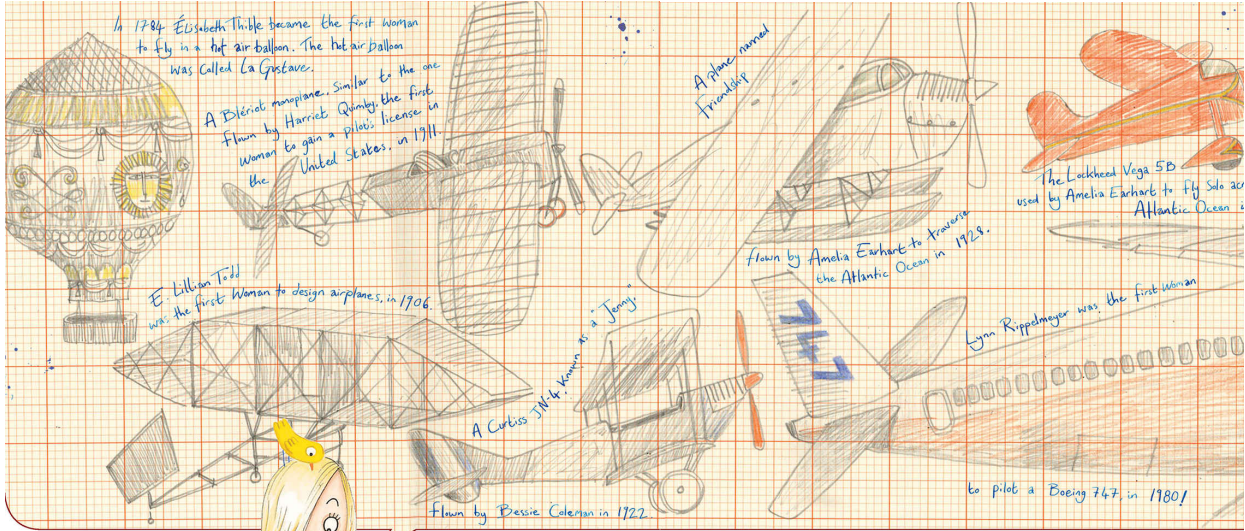 In 1784 Élisabeth Thible became the first woman
to fly in a hot air balloon. The hot air balloon
was called La Gustave.
A Blériot monoplane. Similar to the one
flown by Harriet Quimby, the first
woman to gain a pilot's license in
the United States, in 1911.
A plane named
Friendship
flown by Amelia Earhart to traverse
the Atlantic Ocean in 1928.
The Lockheed Vega 5B
used by Amelia Earhart to fly solo
Atlantic Ocean
E. Lillian Todd
was the first woman to design airplanes, in 1906.
A Curtiss JN-4. Known as a "Jenny."
flown by Bessie Coleman in 1922
747
Lynn Rippelmeyer was the first woman
to pilot a Boeing 747, in 1980!